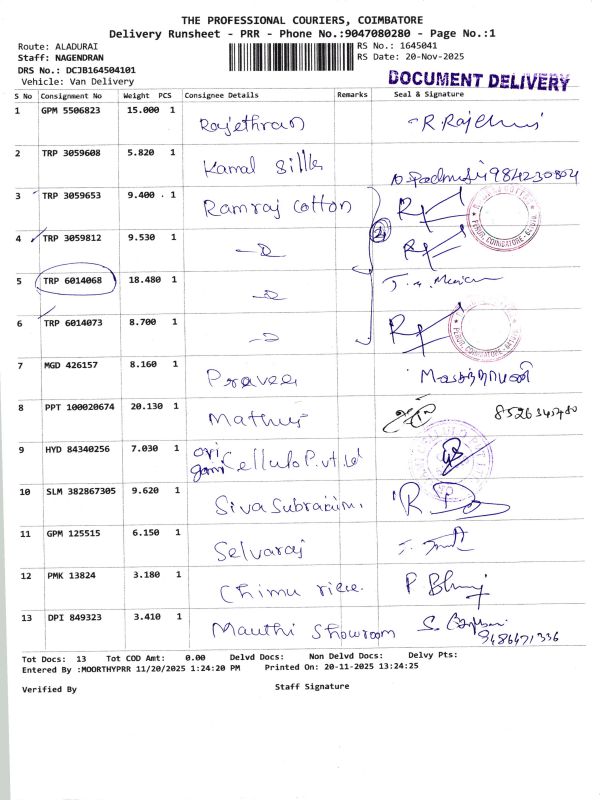 THE PROFESSIONAL COURIERS, COIMBATORE
Delivery Runsheet - PRR - Phone No.:9047080280 - Page No.:1
Route: ALADURAI
RS No.: 1645041
Staff: NAGENDRAN
RS Date: 20-Nov-2025
DRS No.: DCJB164504101
Vehicle: Van Delivery
DOCUMENT DELIVERY
S No Consignment No Weight PCS Consignee Details Remarks Seal & Signature
1 GPM 5506823 15.000 1 Rajethran
2 TRP 3059608 5.820 1 Kamal Sillk 984230804
3 TRP 3059653 9.400 1 Ramraj Cotton
4 TRP 3059812 9.530 1
5 TRP 6014068 18.480 1
6 TRP 6014073 8.700 1
7 MGD 426157 8.160 1 Pravee
8 PPT 100020674 20.130 1 Mathur
9 HYD 84340256 7.030 1 Ori gami Cellulo P.vt.Ltd
10 SLM 382867305 9.620 1
11 GPM 125515 6.150 1 Selvaraj
12 PMK 13824 3.180 1
13 DPI 849323 3.410 1 Mauthi Showroom 9486471336
Tot Docs: 13 Tot COD Amt: 0.00 Delvd Docs: Non Delvd Docs: Delvy Pts:
Entered By :MOORTHYPRR 11/20/2025 1:24:20 PM Printed On: 20-11-2025 13:24:25
Verified By Staff Signature